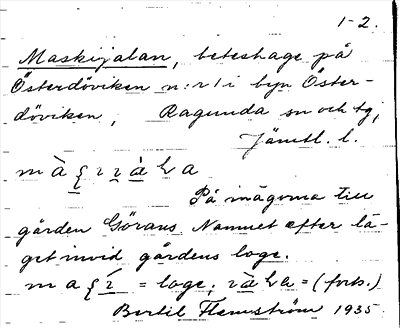 1-2.
Maskijalan, beteshage på
Österdöviken n:r 1 i byn Öster-
döviken, Ragunda sn och tg,
Jämtl. l.
På inägorna till
gården Görans. Namnet efter lä-
get invid gårdens loge.
= loge; = (forts.)
Bertil Flemström 1935.